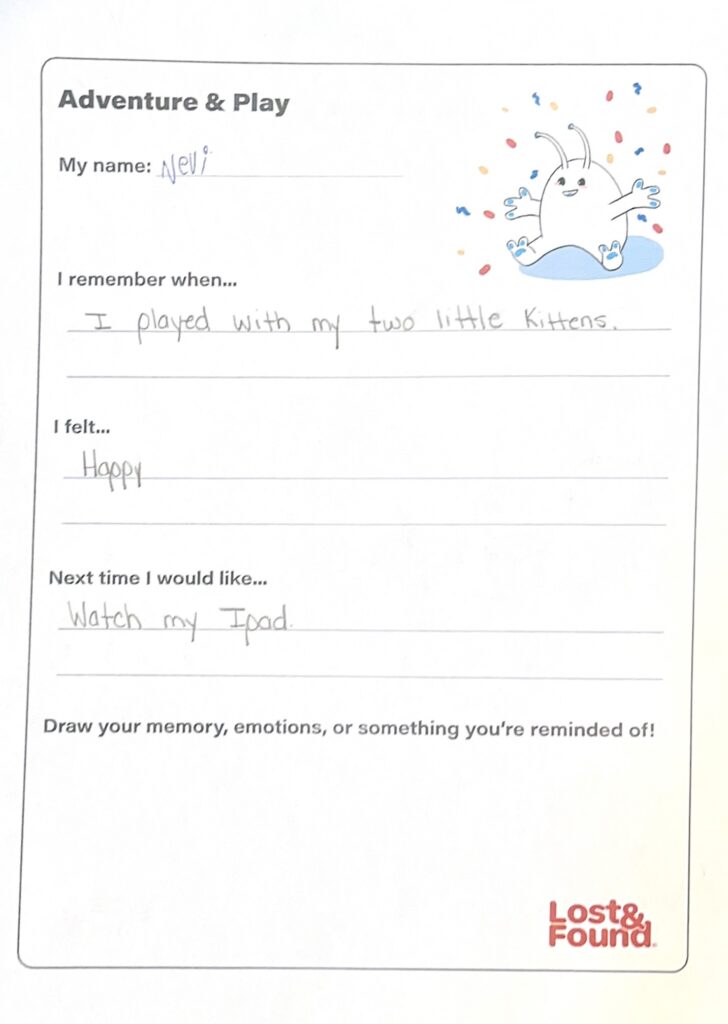 Adventure & Play
My name: Nevi
I remember when...
I played with my two little kittens.
I felt...
Happy
Next time I would like...
Watch my Ipad.
Draw your memory, emotions, or something you're reminded of!
Lost&
Found